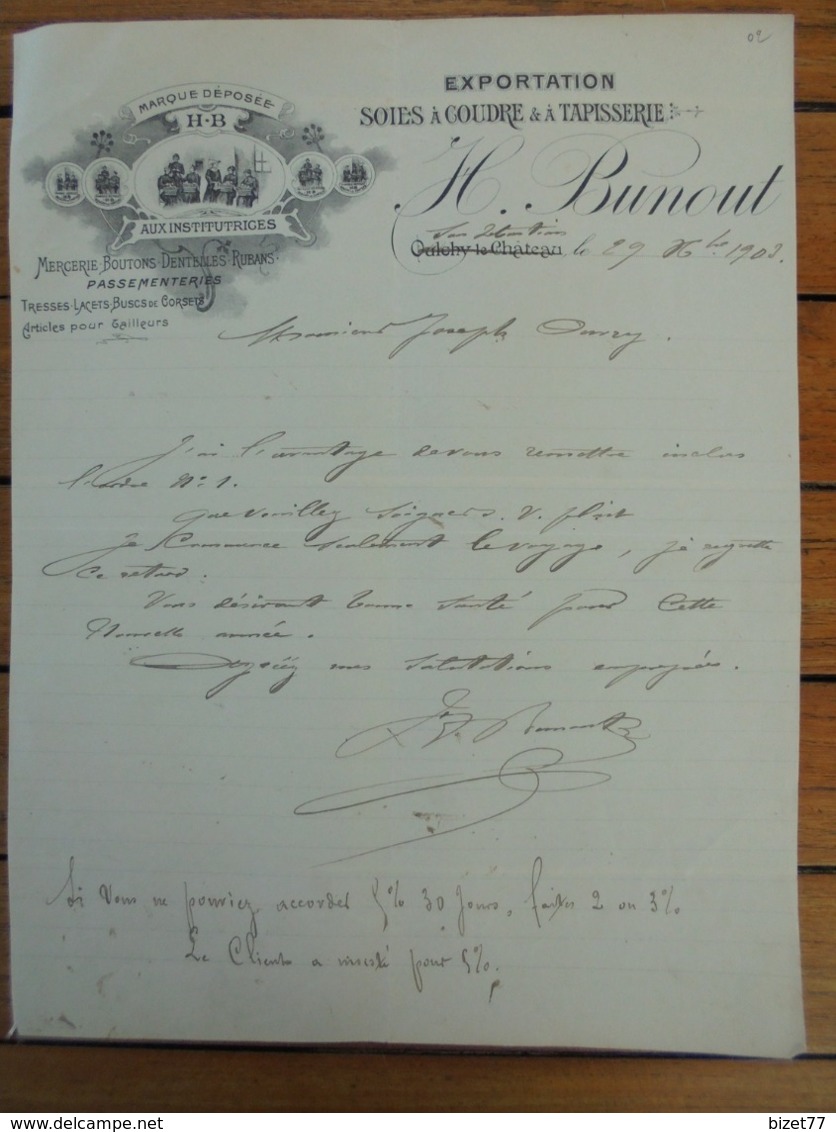 02
MARQUE DÉPOSÉE
H·B
AUX INSTITUTRICES
MERCERIE·BOUTONS·DENTELLES·RUBANS·
PASSEMENTERIES
TRESSES·LACETS·BUSCS DE CORSETS
Articles pour Tailleurs
EXPORTATION
SOIES À COUDRE & À TAPISSERIE
H. Bunout
San Sebastian
Oulchy-le-Château, le 29 Xbre 1903.
Monsieur Joseph
J'ai l'avantage de vous remettre inclus
l'ordre N° 1.
que veuillez soigner s. v. plait
Je commence seulement le voyage, je regrette
ce retard.
Vous désirant bonne santé pour cette
Nouvelle année.
Agréez mes salutations empressées.
Bunout
Si Vous ne pouviez accorder 5% 30 Jours, faites 2 ou 3%
Le Client a insisté pour 5%.
delcampe.net
bizet77